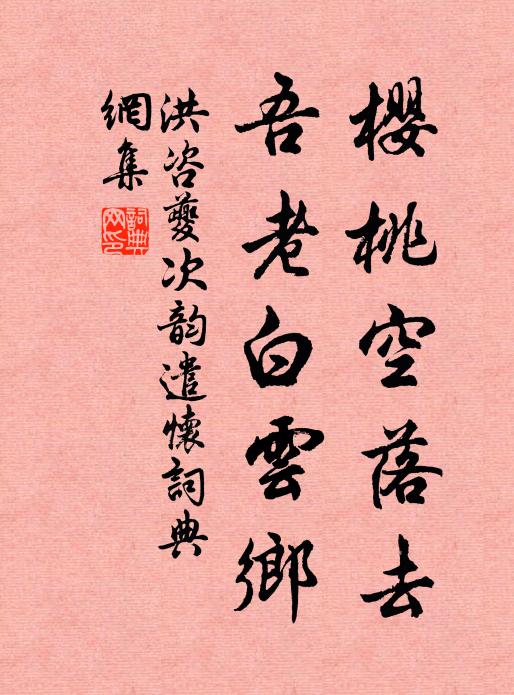 櫻桃空落去
吾老白雲鄉
洪咨夔次韵遣懷詞典
網集
詞典網印